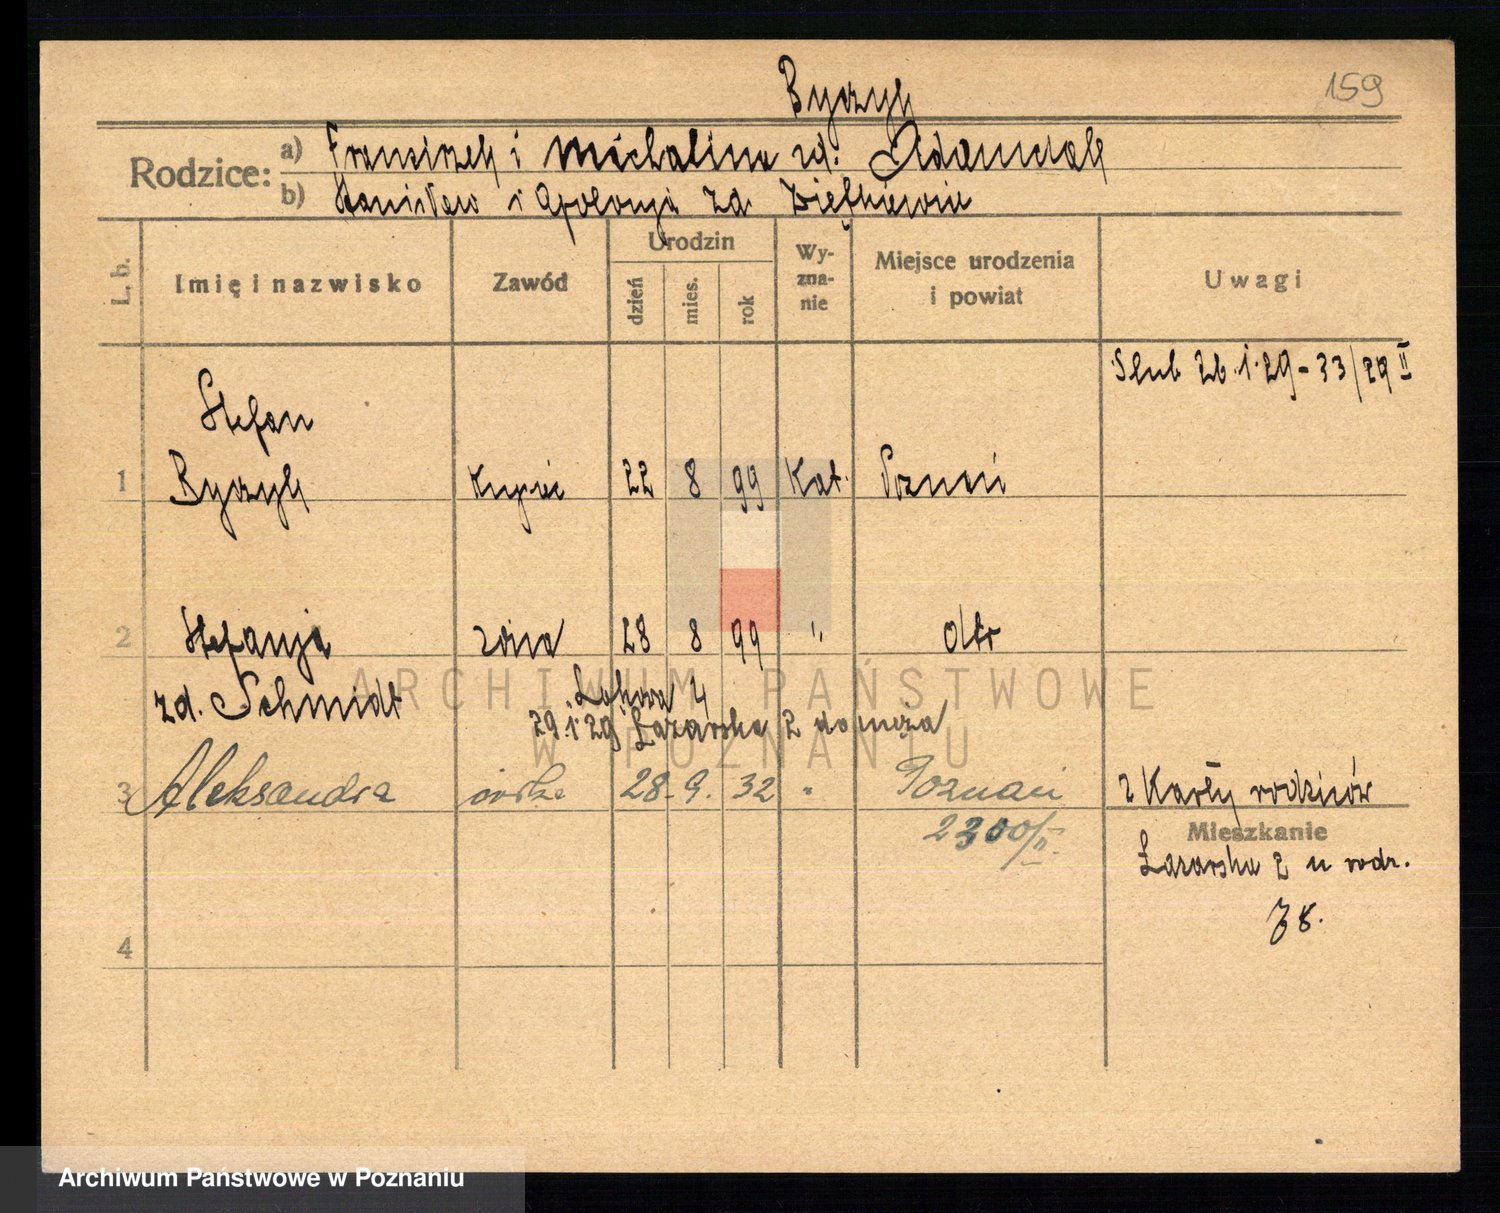 159
Byczyk
Rodzice: a) Franciszek i Michalina zd. Adamczak
b) Stanisław i Apolonja zd.
L. b. Imię i nazwisko Zawód Urodzin dzień mies. rok Wyznanie Miejsce urodzenia i powiat Uwagi
Slub 26.1.29 - 33/29 II
Stefan
1 Byczyk Kupiec 22 8 99 Kat. Poznań
2 Stefanja żona 28 8 99 " 
zd. Schmidt Łąkowa 4
29.1.29 Łazarska 2 do męża
3 Aleksandra córka 28. 9. 32 " Poznań z Karty rodziców
2300/II.
Mieszkanie
Łazarska 2 u rodz.
4
ARCHIWUM PAŃSTWOWE
W POZNANIU
Archiwum Państwowe w Poznaniu